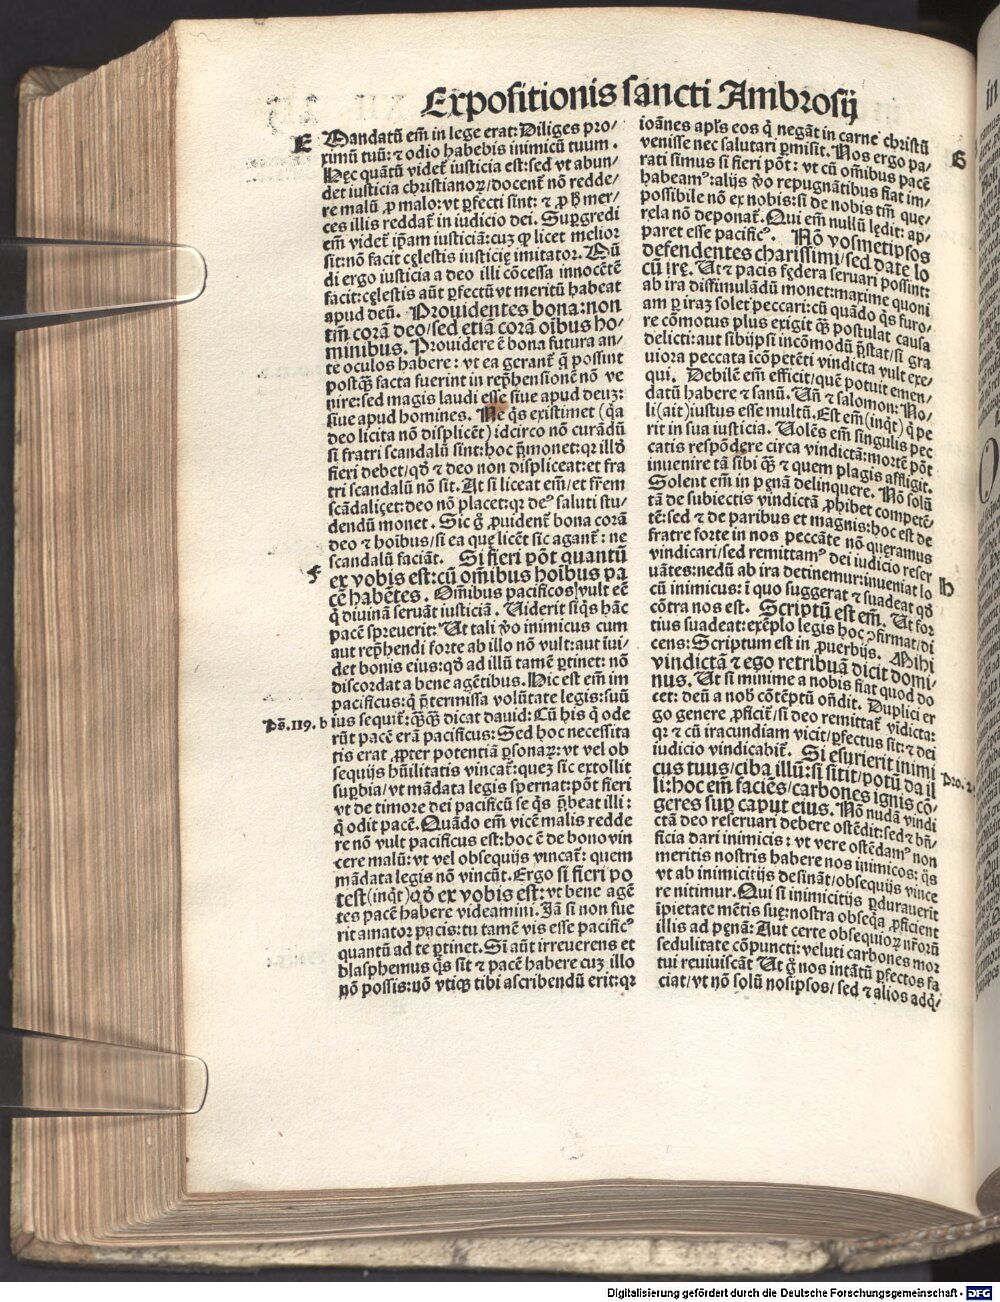 Expositionis sancti Ambrosij
E
Mandatū em̄ in lege erat: Diliges pro/
ximū tuū: ⁊ odio habebis inimicū tuum.
Hęc quātū videt᷑ iusticia est: sed vt abun/
det iusticia christianoꝝ/ docent᷑ nō redde/
re malū ꝓ malo: vt ꝑfecti sint: ⁊ ꝓ h̄ mer/
ces illis reddat᷑ in iudicio dei. Suꝑgredi
em̄ videt᷑ ip̄am iusticiā: cuꝫ ꝙ licet melior
sit: nō facit cęlestis iusticię imitator. Mū
di ergo iusticia a deo illi cōcessa innocētē
facit: cęlestis aūt ꝑfectū vt meritū habeat
apud deū. Prouidentes bona: non
tm̄ corā deo/ sed etiā corā oībus ho/
minibus. Prouidere ē bona futura an/
te oculos habere: vt ea gerant᷑ q̄ possint
postq̄ꝫ facta fuerint in rep̄hensionē nō ve
nire: sed magis laudi esse siue apud deuꝫ:
siue apud homines. Ne q̄s existimet (q̄a
deo licita nō displicēt) idcirco nō curādū
si fratri scandalū sint: hoc p̄monet: qꝛ illḋ
fieri debet/ qḋ ⁊ deo non displiceat: et fra
tri scandalū nō sit. At si liceat em̄/ et fr̄em
scādaliçet: deo nō placet: qꝛ deꝰ saluti stu/
dendū monet. Sic g̊ ꝓuident᷑ bona corā
deo ⁊ hoībus/ si ea quę licēt sic agant᷑: ne
scandalū faciāt. Si fieri pōt quantū
F
ex vobis est: cū om̄ibus hoībus pa
cē habētes. Om̄ibus pacificos vult eē
q̄ diuinā seruāt iusticiā. Uiderit siq̄s hāc
pacē spreuerit: Ut tali ꝟo inimicus cum
aut rep̄hendi forte ab illo nō vult: aut īui/
det bonis eius: qḋ ad illū tamē ꝑtinet: nō
discordat a bene agētibus. Hic est em̄ im
pacificus: q̄ p̄termissa volūtate legis: suū
Ps̄. 119. b
ius sequit᷑: q̄ꝫq̄ꝫ dicat dauid: Cū his q̄ ode
rūt pacē erā pacificus: Sed hoc necessita
tis erat ꝓpter potentiā ꝑsonaꝝ: vt vel ob
sequijs hūilitatis vincat᷑: quez sic extollit
suꝑbia/ vt mādata legis spernat: pōt fieri
vt de timore dei pacificū se q̄s p̄beat illi:
q̄ odit pacē. Quādo em̄ vicē malis redde
re nō vult pacificus est: hoc ē de bono vin
cere malū: vt vel obsequijs vincat᷑: quem
mādata legis nō vincūt. Ergo si fieri po
test (inq̄t) qḋ ex vobis est: vt bene agē
tes pacē habere videamini. Jā si non fue
rit amator pacis: tu tamē vis esse pacificꝰ
quantū ad te ꝑtinet. Si aūt irreuerens et
blasphemus q̄s sit ⁊ pacē habere cuꝫ illo
nō possis: nō vtiqꝫ tibi ascribendū erit: qꝛ
ioānes apl̄s eos q̄ negāt in carne christū
venisse nec salutari ꝑmisit. Nos ergo pa/
G
rati simus si fieri pōt: vt cū om̄ibus pacē
habeamꝰ: alijs ꝟo repugnātibus fiat im/
possibile nō ex nobis: si de nobis tm̄ que/
rela nō deponat᷑. Qui em̄ nullū lędit: ap/
paret esse pacificꝰ. Nō vosmetipsos
defendentes charissimi/ sed date lo
cū irę. Ut ⁊ pacis fędera seruari possint:
ab ira dissimulādū monet: maxime quoni
am ꝑ iraꝫ solet peccari: cū quādo q̄s furo/
re cōmotus plus exigit q̄ꝫ postulat causa
delicti: aut sibijpsi incōmodū p̄stat/ si gra
uiora peccata īcōpetēti vindicta vult exe/
qui. Debilē em̄ efficit/ quē potuit emen/
datū habere ⁊ sanū. Un̄ ⁊ salomon: No/
li (ait) iustus esse multū. Est em̄ (inq̄t) q̄ pe
rit in sua iusticia. Uolēs em̄ singulis pec
catis respōdere circa vindictā: mortē pōt
inuenire tā sibi q̄ꝫ ⁊ quem plagis affligit.
Solent em̄ in pęnā delinquere. Nō solū
tā de subiectis vindictā ꝓhibet competē/
tē: sed ⁊ de paribus et magnis: hoc est de
fratre forte in nos peccāte nō queramus
vindicari/ sed remittamꝰ dei iudicio reser
uātes: nedū ab ira detinemur: inueniat lo
H
cū inimicus: ī quo suggerat ⁊ suadeat qḋ
cōtra nos est. Scriptū est em̄. Ut for
tius suadeat: exēplo legis hoc ꝯfirmat/ di
cens: Scriptum est in ꝓuerbijs. Mihi
vindictā ⁊ ego retribuā dicit domi/
nus. Ut si minime a nobis fiat quod do
cet: deū a nob̄ cōtēptū on̄dit. Duplici er
go genere ꝓficit᷑/ si deo remittat᷑ vīdicta:
qꝛ ⁊ cū iracundiam vicit/ ꝑfectus sit: ⁊ dei
iudicio vindicabit᷑. Si esurierit inimi
cus tuus/ ciba illū: si sitit/ potū da il
Pro. 2.
li: hoc em̄ faciēs/ carbones ignis cō/
geres suꝑ caput eius. Nō nudā vindi
ctā deo reseruari debere ostēdit: sed ⁊ bn̄/
ficia dari inimicis: vt vere ostēdamꝰ non
meritis nostris habere nos inimicos: q̄s
vt ab inimicitijs desināt/ obsequijs vince
re nitimur. Qui si inimicitijs ꝑdurauerit
īpietate mētis suę: nostra obseq̄a ꝓficient
illis ad pęnā: Aut certe obsequioꝝ nr̄orū
sedulitate cōpuncti: veluti carbones mor
tui reuiuiscāt Ut g̊ nos intātū ꝑfectos fa
ciat/ vt nō solū nosipsos/ sed ⁊ alios adq̄/
Digitalisierung gefördert durch die Deutsche Forschungsgemeinschaft - DFG